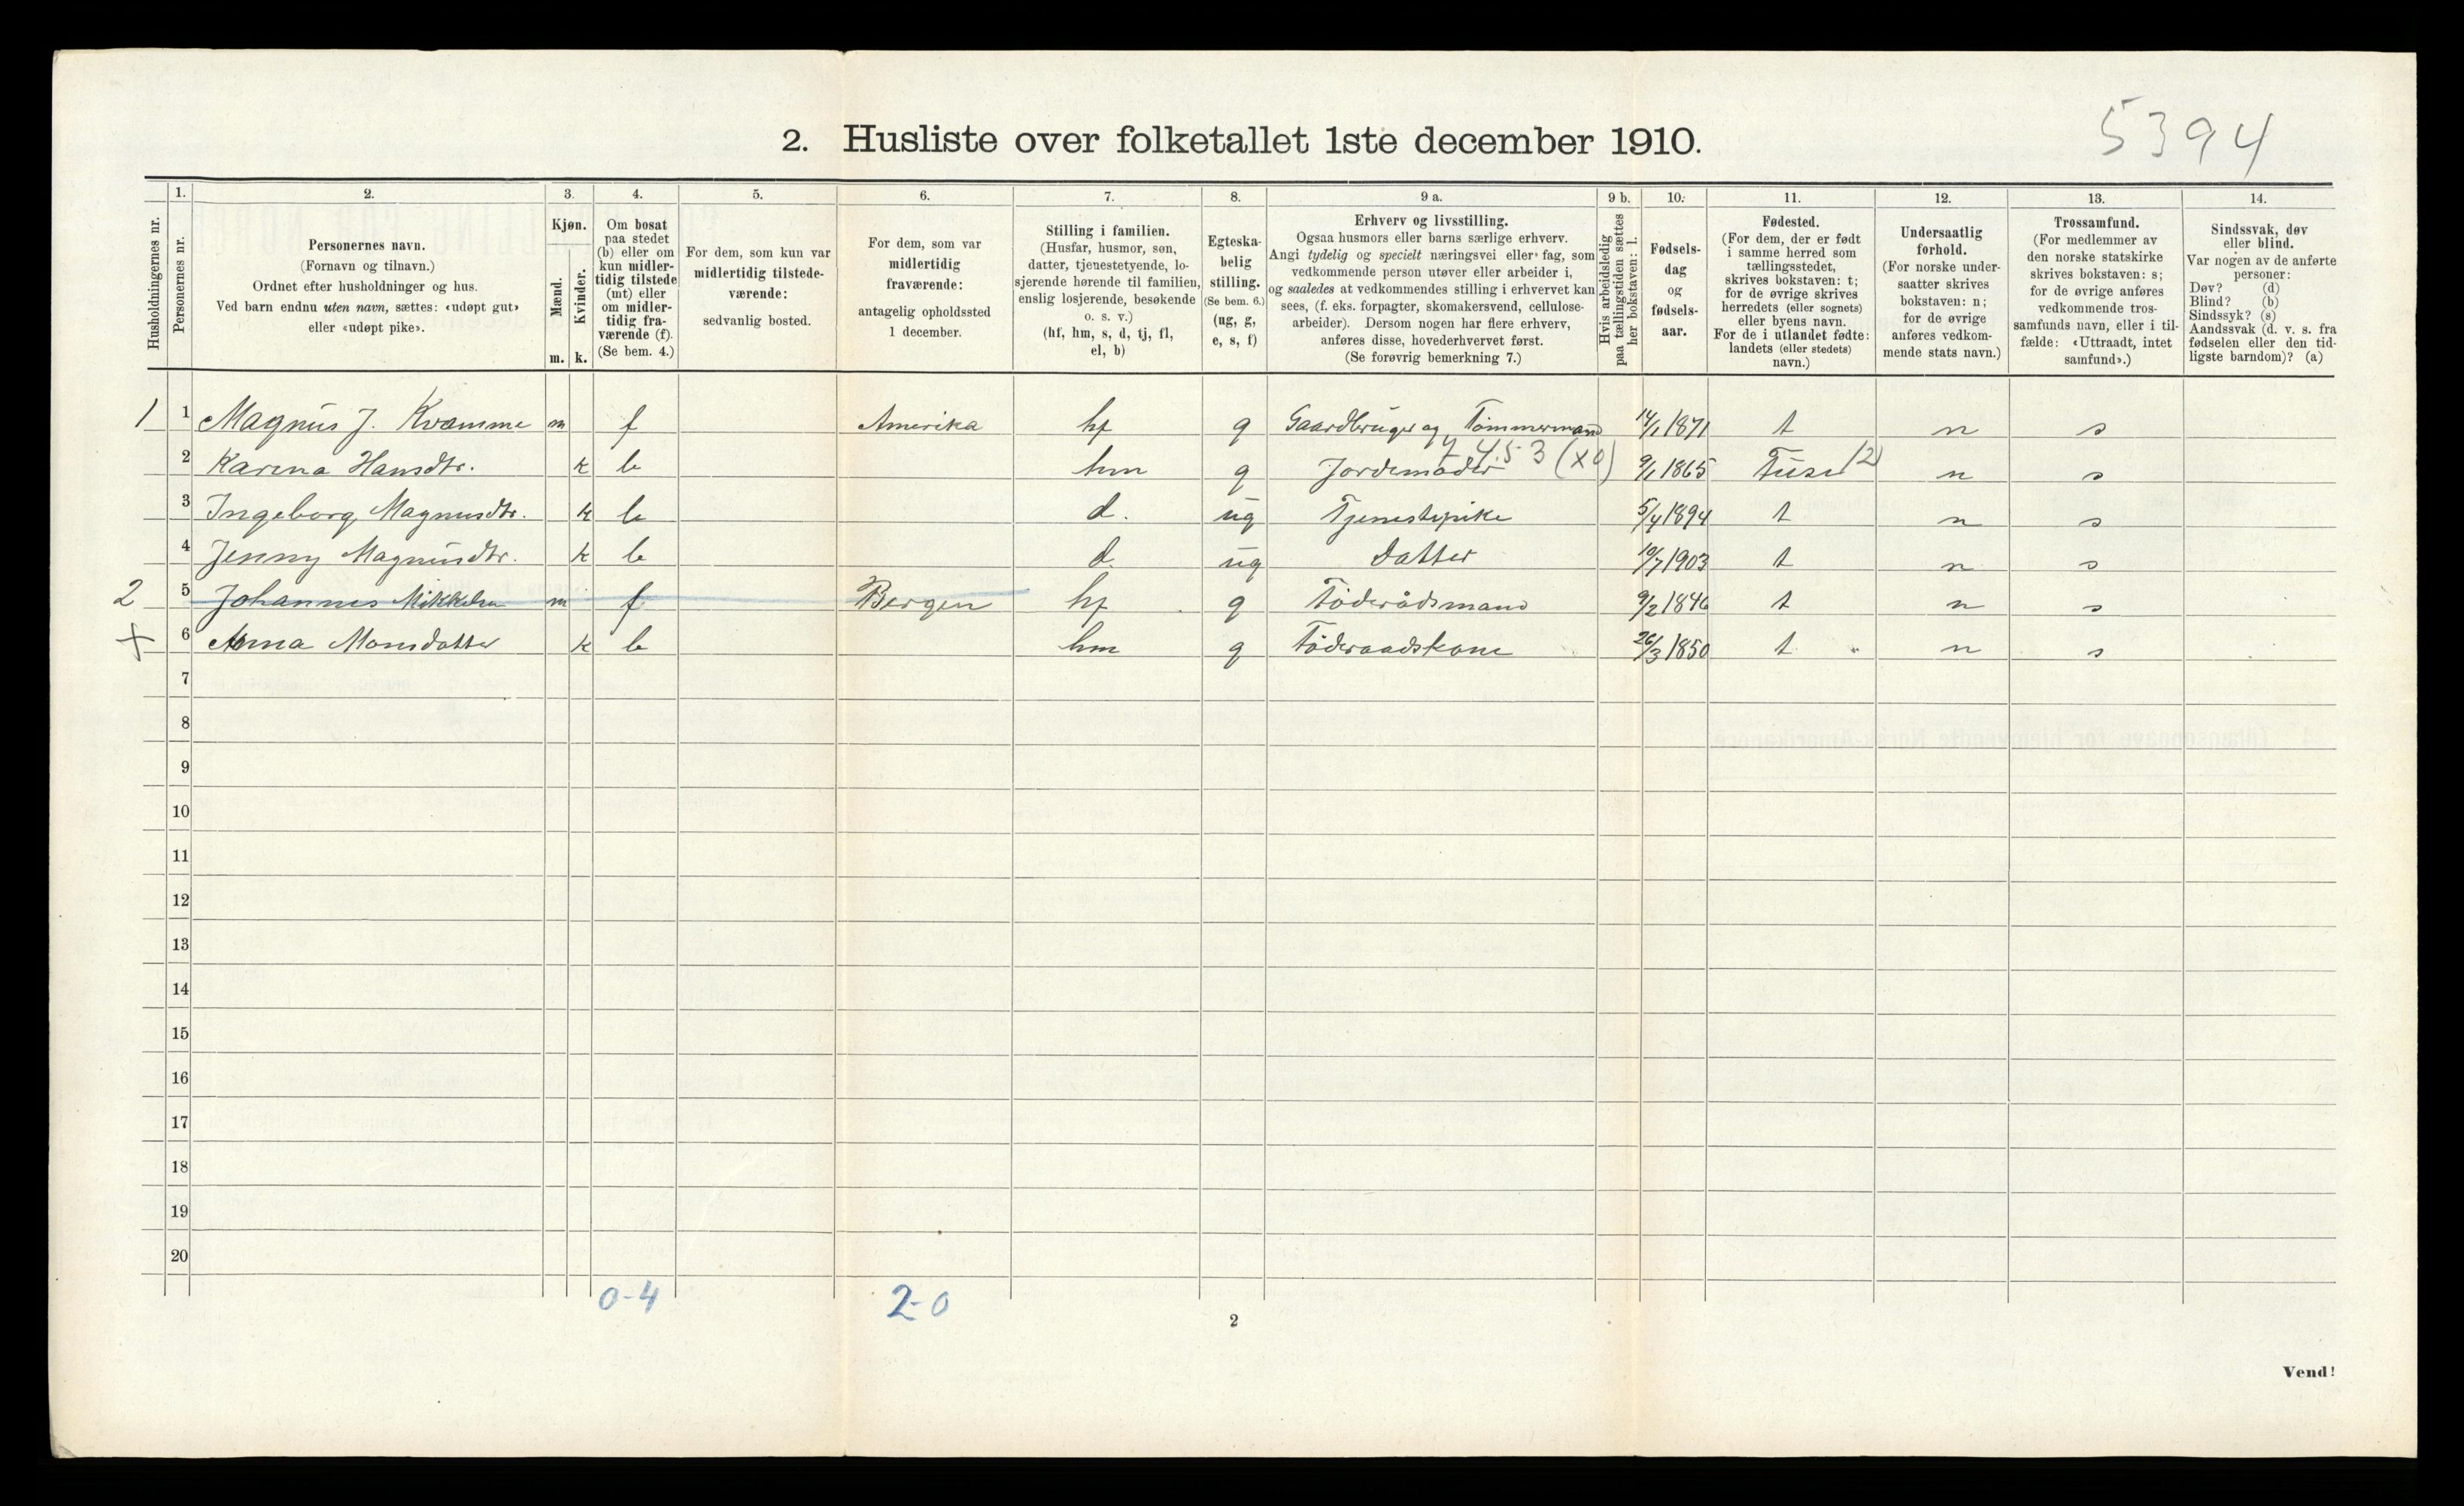 5394
2. Husliste over folketallet 1ste december 1910.
Husholdningernes nr.
1.
Personernes nr.
2.
Personernes navn.
(Fornavn og tilnavn.)
Ordnet efter husholdninger og hus.
Ved barn endnu uten navn, sættes: «udøpt gut»
eller «udøpt pike».
3.
Kjøn.
Mænd.
Kvinder.
m. k.
4.
Om bosat
paa stedet
(b) eller om
kun midler-
tidig tilstede
(mt) eller
om midler-
tidig fra-
værende (f).
(Se bem. 4.)
5.
For dem, som kun var
midlertidig tilstede-
værende:
sedvanlig bosted.
6.
For dem, som var
midlertidig
fraværende:
antagelig opholdssted
1 december.
7.
Stilling i familien.
(Husfar, husmor, søn,
datter, tjenestetyende, lo-
sjerende hørende til familien,
enslig losjerende, besøkende
o. s. v.)
(hf, hm, s, d, tj, fl,
el, b)
8.
Egteska-
belig
stilling.
(Se bem. 6.)
(ug, g,
e, s, f)
9 a.
Erhverv og livsstilling.
Ogsaa husmors eller barns særlige erhverv.
Angi tydelig og specielt næringsvei eller fag, som
vedkommende person utøver eller arbeider i,
og saaledes at vedkommendes stilling i erhvervet kan
sees, (f. eks. forpagter, skomakersvend, cellulose-
arbeider). Dersom nogen har flere erhverv,
anføres disse, hovederhvervet først.
(Se forøvrig bemerkning 7.)
9 b.
Hvis arbeidsledig
paa tællingstiden sættes
her bokstaven: l.
10.
Fødsels-
dag
og
fødsels-
aar.
11.
Fødested.
(For dem, der er født
i samme herred som
tællingsstedet,
skrives bokstaven: t;
for de øvrige skrives
herredets (eller sognets)
eller byens navn.
For de i utlandet fødte:
landets (eller stedets)
navn.)
12.
Undersaatlig
forhold.
(For norske under-
saatter skrives
bokstaven: n;
for de øvrige
anføres vedkom-
mende stats navn.)
13.
Trossamfund.
(For medlemmer av
den norske statskirke
skrives bokstaven: s;
for de øvrige anføres
vedkommende tros-
samfunds navn, eller i til-
fælde: «Uttraadt, intet
samfund».)
14.
Sindssvak, døv
eller blind.
Var nogen av de anførte
personer:
Døv? (d)
Blind? (b)
Sindssyk? (s)
Aandssvak (d. v. s. fra
fødselen eller den tid-
ligste barndom)? (a)
1 1 Magnus J. Kvamme m f Amerika hf g Gaardbruger og Tømmermand 14/1 1871 t n s
7453 (x0)
2 Karina Hansdtr. k b hm g Jordemoder 9/1 1865 Fuse 12) n s
3 Ingeborg Magnusdtr. k b d. ug Tjenestepike 5/4 1894 t n s
4 Jenny Magnusdtr. k b d. ug Datter 10/7 1903 t n s
2 5 Johannes Mikkelsen m f Bergen hf g Föderådsmand 9/2 1846 t n s
+ 6 Anna Monsdatter k b hm g Föderaadskone 26/3 1850 t n s
7
8
9
10
11
12
13
14
15
16
17
18
19
20
0-4 2-0
2
Vend!